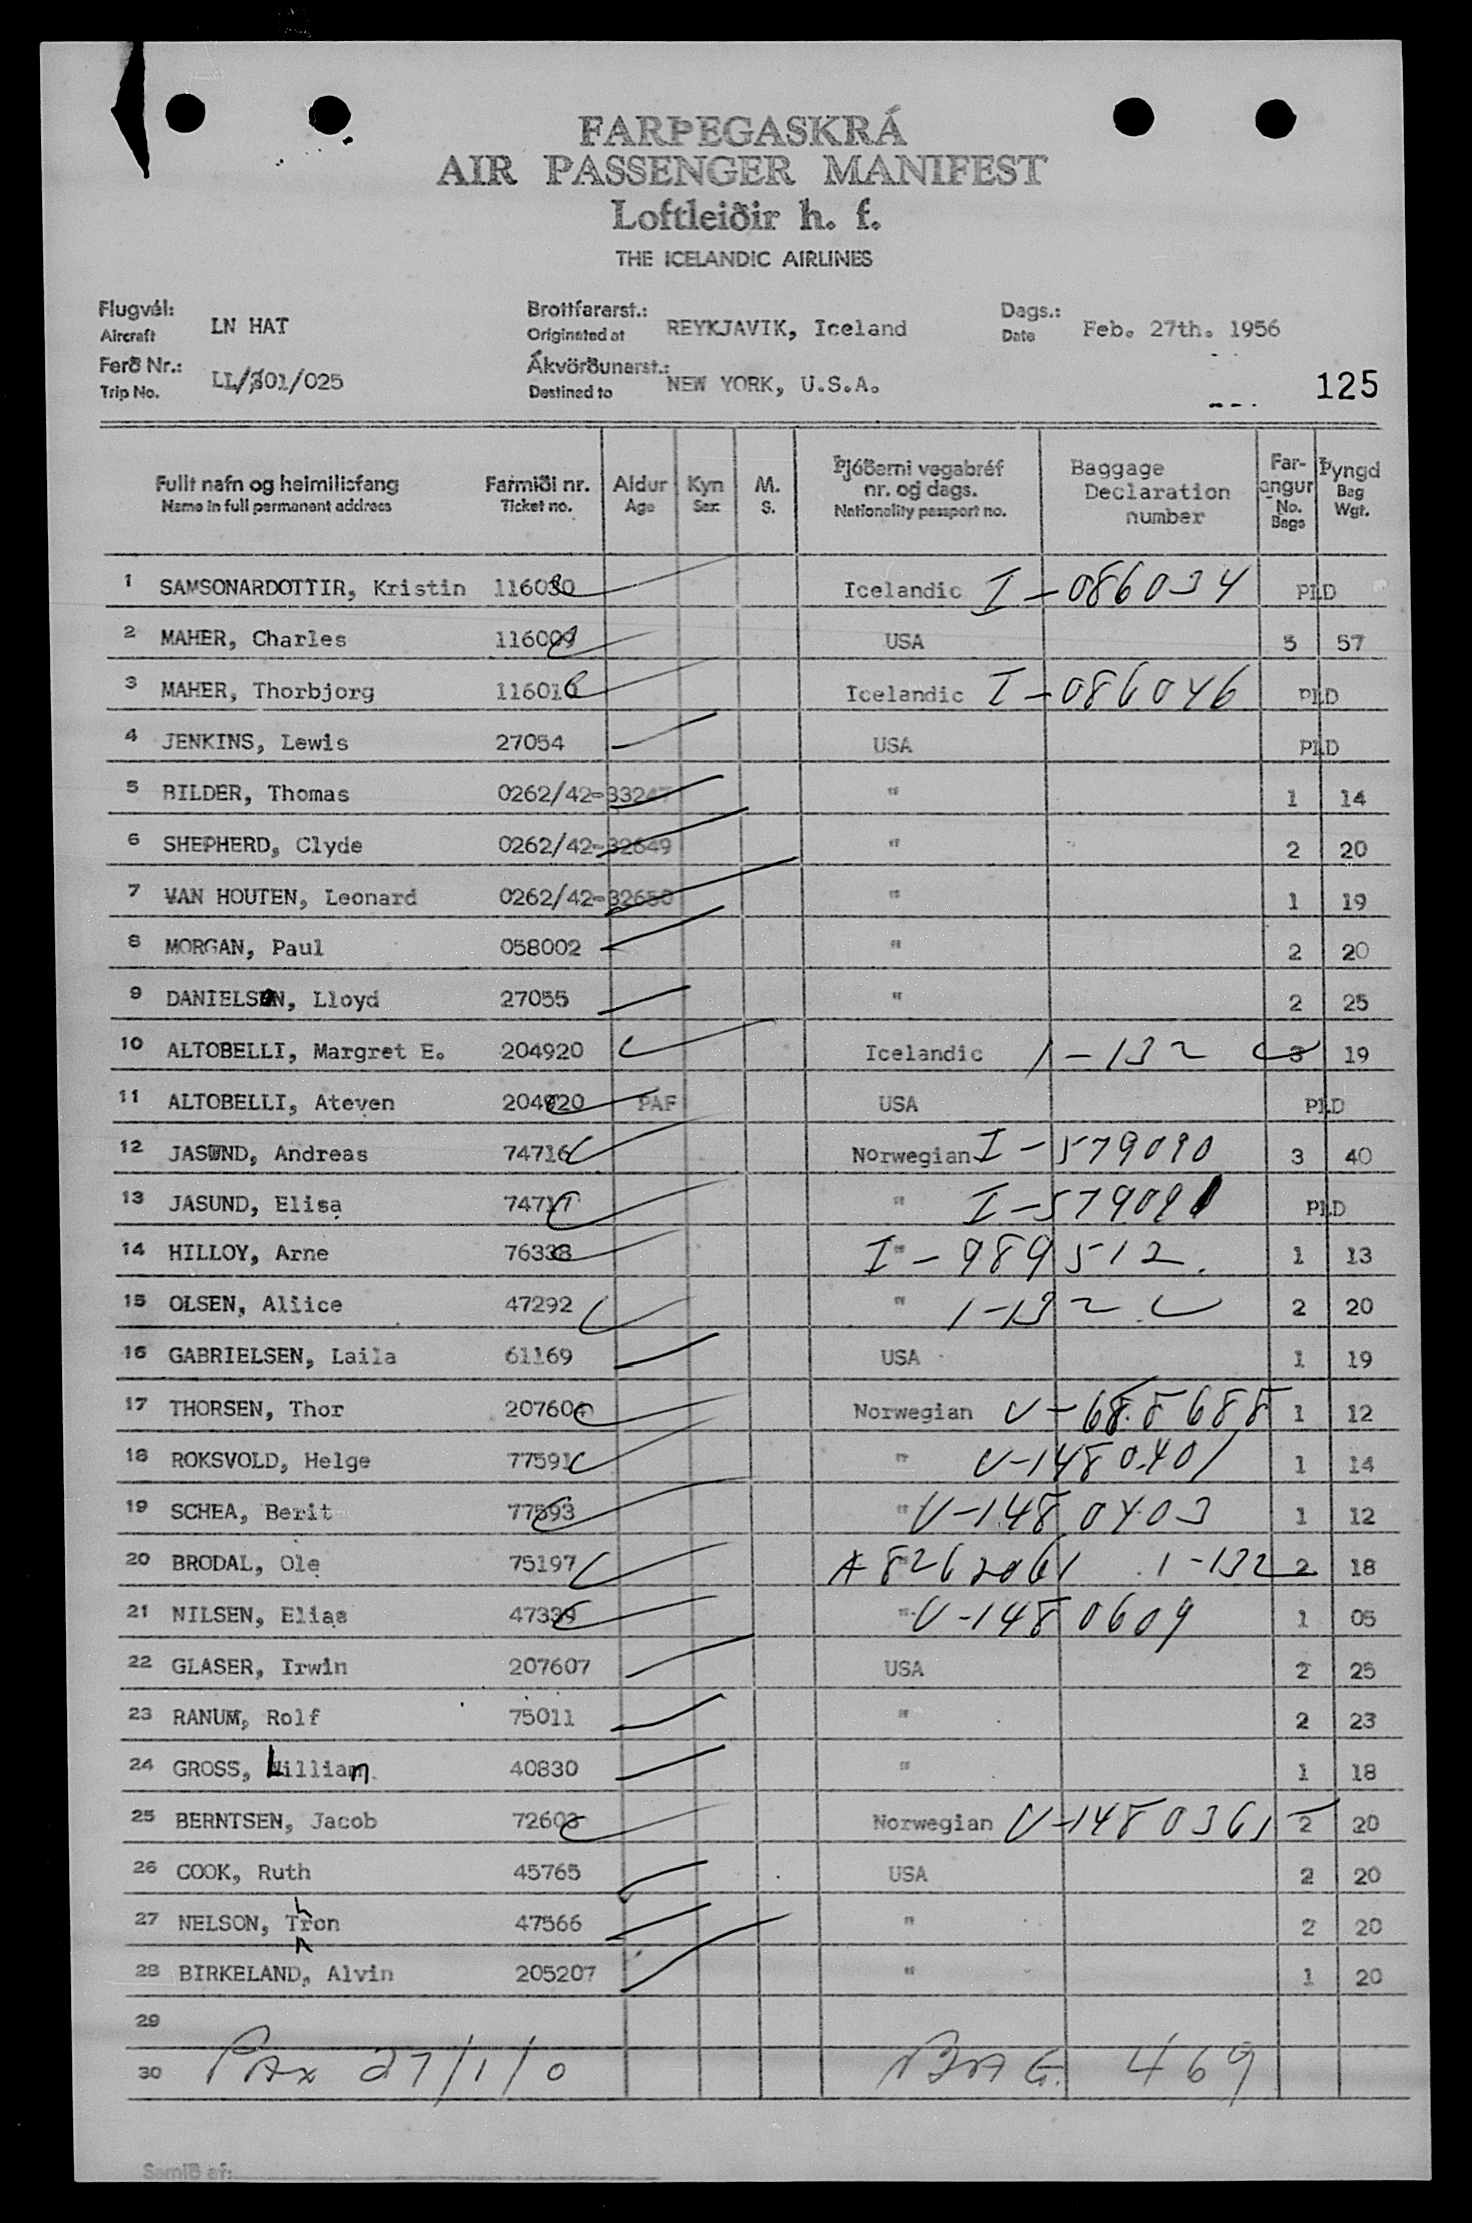 FARÞEGASKRÁ
AIR PASSENGER MANIFEST
Loftleiðir h. f.
THE ICELANDIC AIRLINES
Flugvél: Aircraft LN HAT Brottfararst.: Originated at REYKJAVIK, Iceland Dags.: Date Feb. 27th. 1956
Ferð Nr.: Trip No. LL/301/025 Ákvörðunarst.: Destined to NEW YORK, U.S.A.
125
Fullt nafn og heimilisfang Name in full permanent address Farmiði nr. Ticket no. Aldur Age Kyn Sex M. S. Þjóðerni vegabréf nr. og dags. Nationality passport no. Baggage Declaration number Far-angur No. Bags Þyngd Bag Wgt.
1 SAMSONARDOTTIR, Kristin 116030 Icelandic I-086034 PLD
2 MAHER, Charles 116009 USA 5 57
3 MAHER, Thorbjorg 116010 Icelandic I-086046 PLD
4 JENKINS, Lewis 27054 USA PLD
5 BILDER, Thomas 0262/42-33247 " 1 14
6 SHEPHERD, Clyde 0262/42-32649 " 2 20
7 VAN HOUTEN, Leonard 0262/42-32650 " 1 19
8 MORGAN, Paul 058002 " 2 20
9 DANIELSEN, Lloyd 27055 " 2 25
10 ALTOBELLI, Margret E. 204920 Icelandic 1-132 3 19
11 ALTOBELLI, Ateven 204920 PAF USA PLD
12 JASUND, Andreas 74716 Norwegian I-579090 3 40
13 JASUND, Elisa 74717 " I-579091 PLD
14 HILLOY, Arne 76338 " I-989512 1 13
15 OLSEN, Aliice 47292 " 1-132 2 20
16 GABRIELSEN, Laila 61169 USA 1 19
17 THORSEN, Thor 207604 Norwegian V-685688 1 12
18 ROKSVOLD, Helge 77591 " V-1480401 1 14
19 SCHEA, Berit 77593 " V-1480403 1 12
20 BRODAL, Ole 75197 " A8262061 1-132 2 18
21 NILSEN, Elias 47339 " V-1480609 1 05
22 GLASER, Irwin 207607 USA 2 25
23 RANUM, Rolf 75011 " 2 23
24 GROSS, Lillian 40830 " 1 18
25 BERNTSEN, Jacob 72603 Norwegian V-1480361 2 20
26 COOK, Ruth 45765 USA 2 20
27 NELSON, Thron 47566 " 2 20
28 BIRKELAND, Alvin 205207 " 1 20
29
30 PAX 27/1/0 BAG. 469
Samið af: